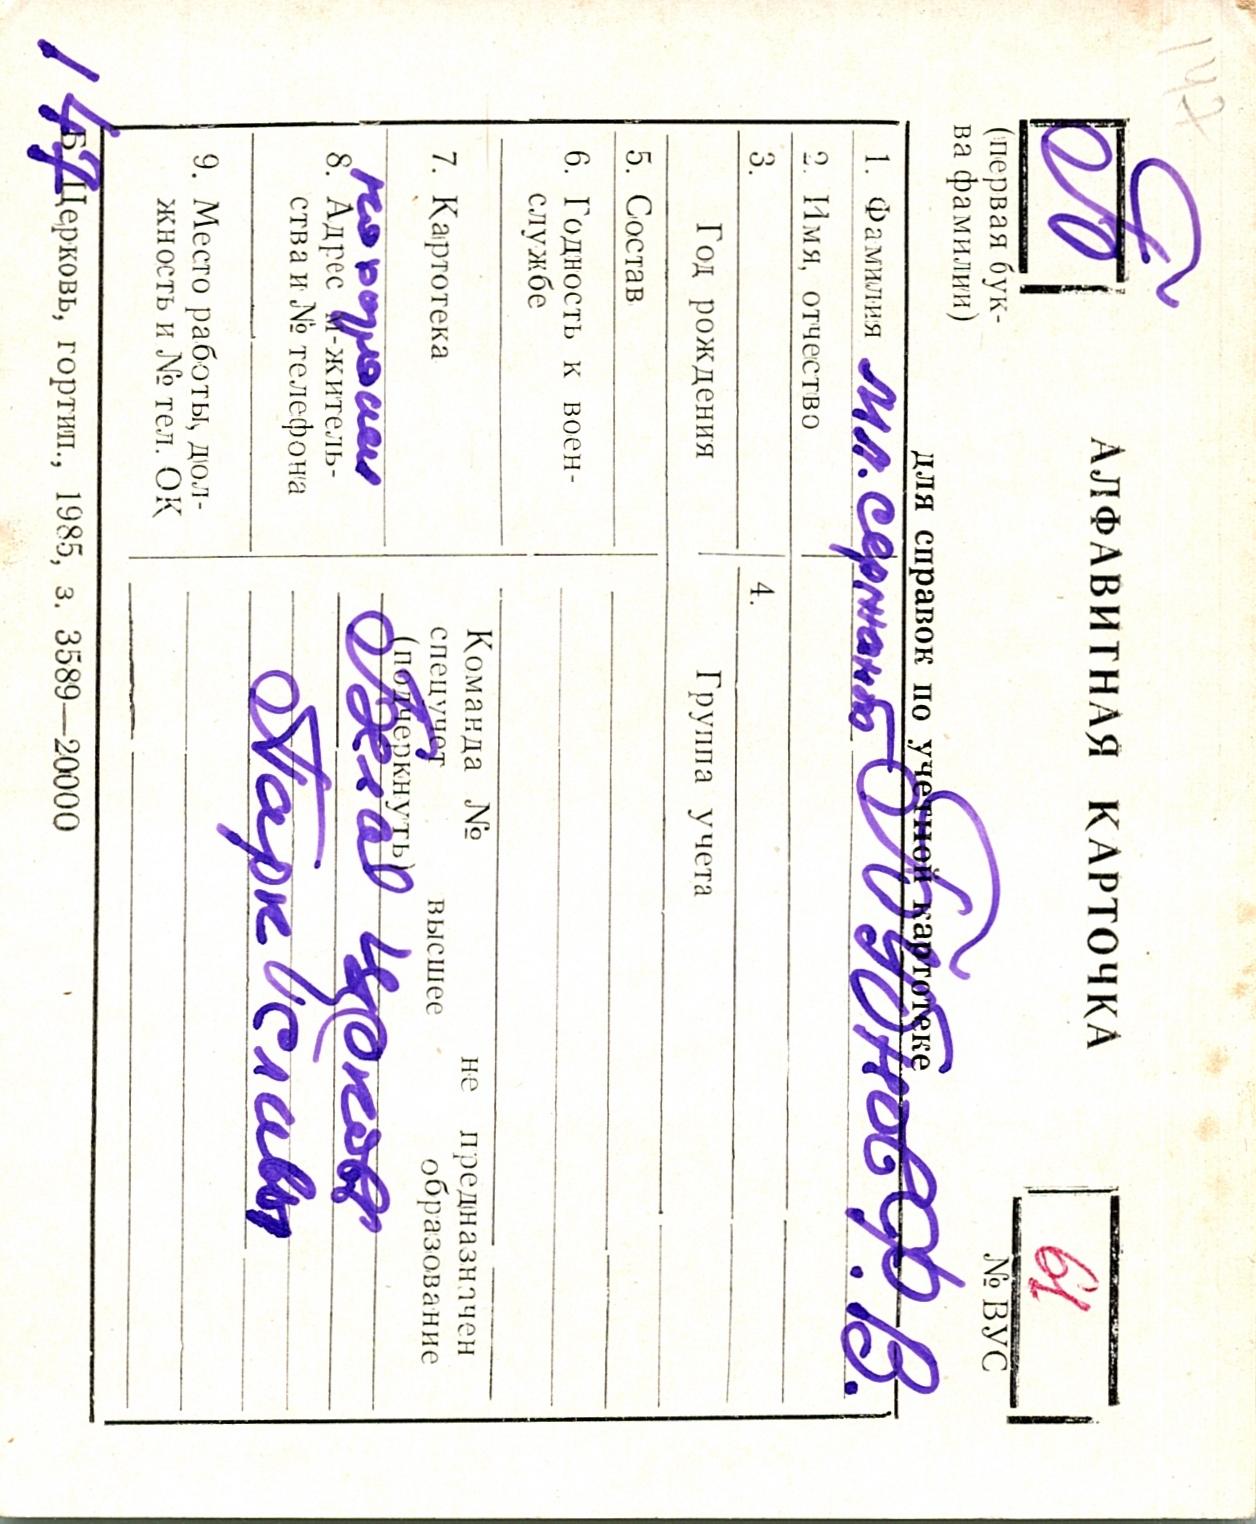 147
Б
(первая бук-
ва фамилии)
АЛФАВИТНАЯ КАРТОЧКА
для справок по учетной картотеке
61
№ ВУС
1. Фамилия мл. сержант Бубнов Ф. В.
2. Имя, отчество
3.
Год рождения
4.
Группа учета
5. Состав
6. Годность к воен-
службе
7. Картотека
похоронен
8. Адрес м-житель-
ства и № телефона
9. Место работы, дол-
жность и № тел. ОК
Команда № не предназначен
спецучет высшее образование
(подчеркнуть)
Белая Церковь
Парк Славы
147
Б. Церковь, гортип., 1985, з. 3589—20000